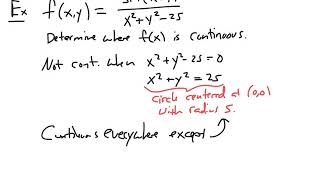 Ex f(x,y) =
x²+y²-25
Determine where f(x) is continuous.
Not cont. when x²+y²-25=0
x²+y²=25
circle centered at (0,0)
with radius 5.
Continuous everywhere except